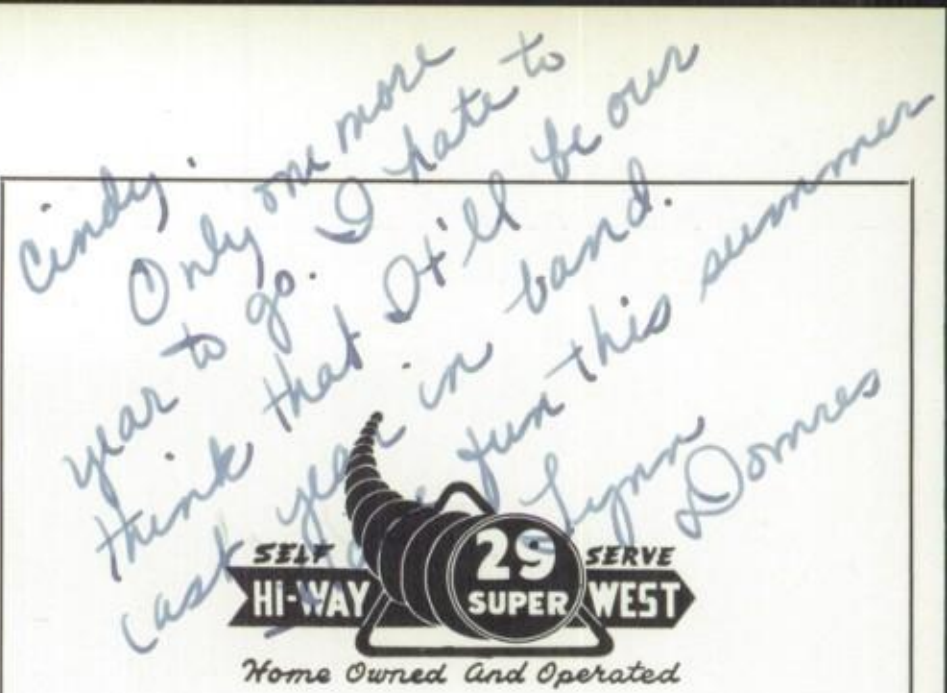 Cindy,
Only one more
year to go. I hate to
think that It'll be our
last year in band.
Have fun this summer
Lynn
Domres
SELF SERVE
HI-WAY 29 SUPER WEST
Home Owned And Operated